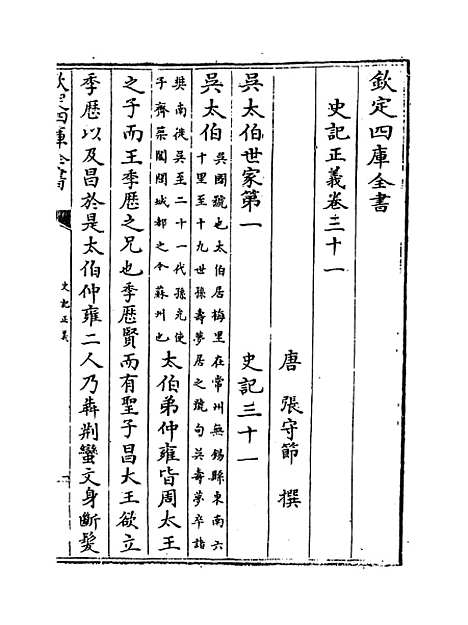 欽定四庫全書
史記正義卷三十一
唐 張守節 撰
吳太伯世家第一 史記三十一
吳太伯 吳國號也太伯居梅里在常州無錫縣東南六
十里至十九世孫壽夢居之號句吳壽夢卒諸
樊南徙吳至二十一代孫光使
子胥築闔閭城都之今蘇州也 太伯弟仲雍皆周太王
之子而王季歷之兄也季歷賢而有聖子昌大王欲立
季歷以及昌於是太伯仲雍二人乃犇荆蠻文身斷髮
欽定四庫全書
史記正義